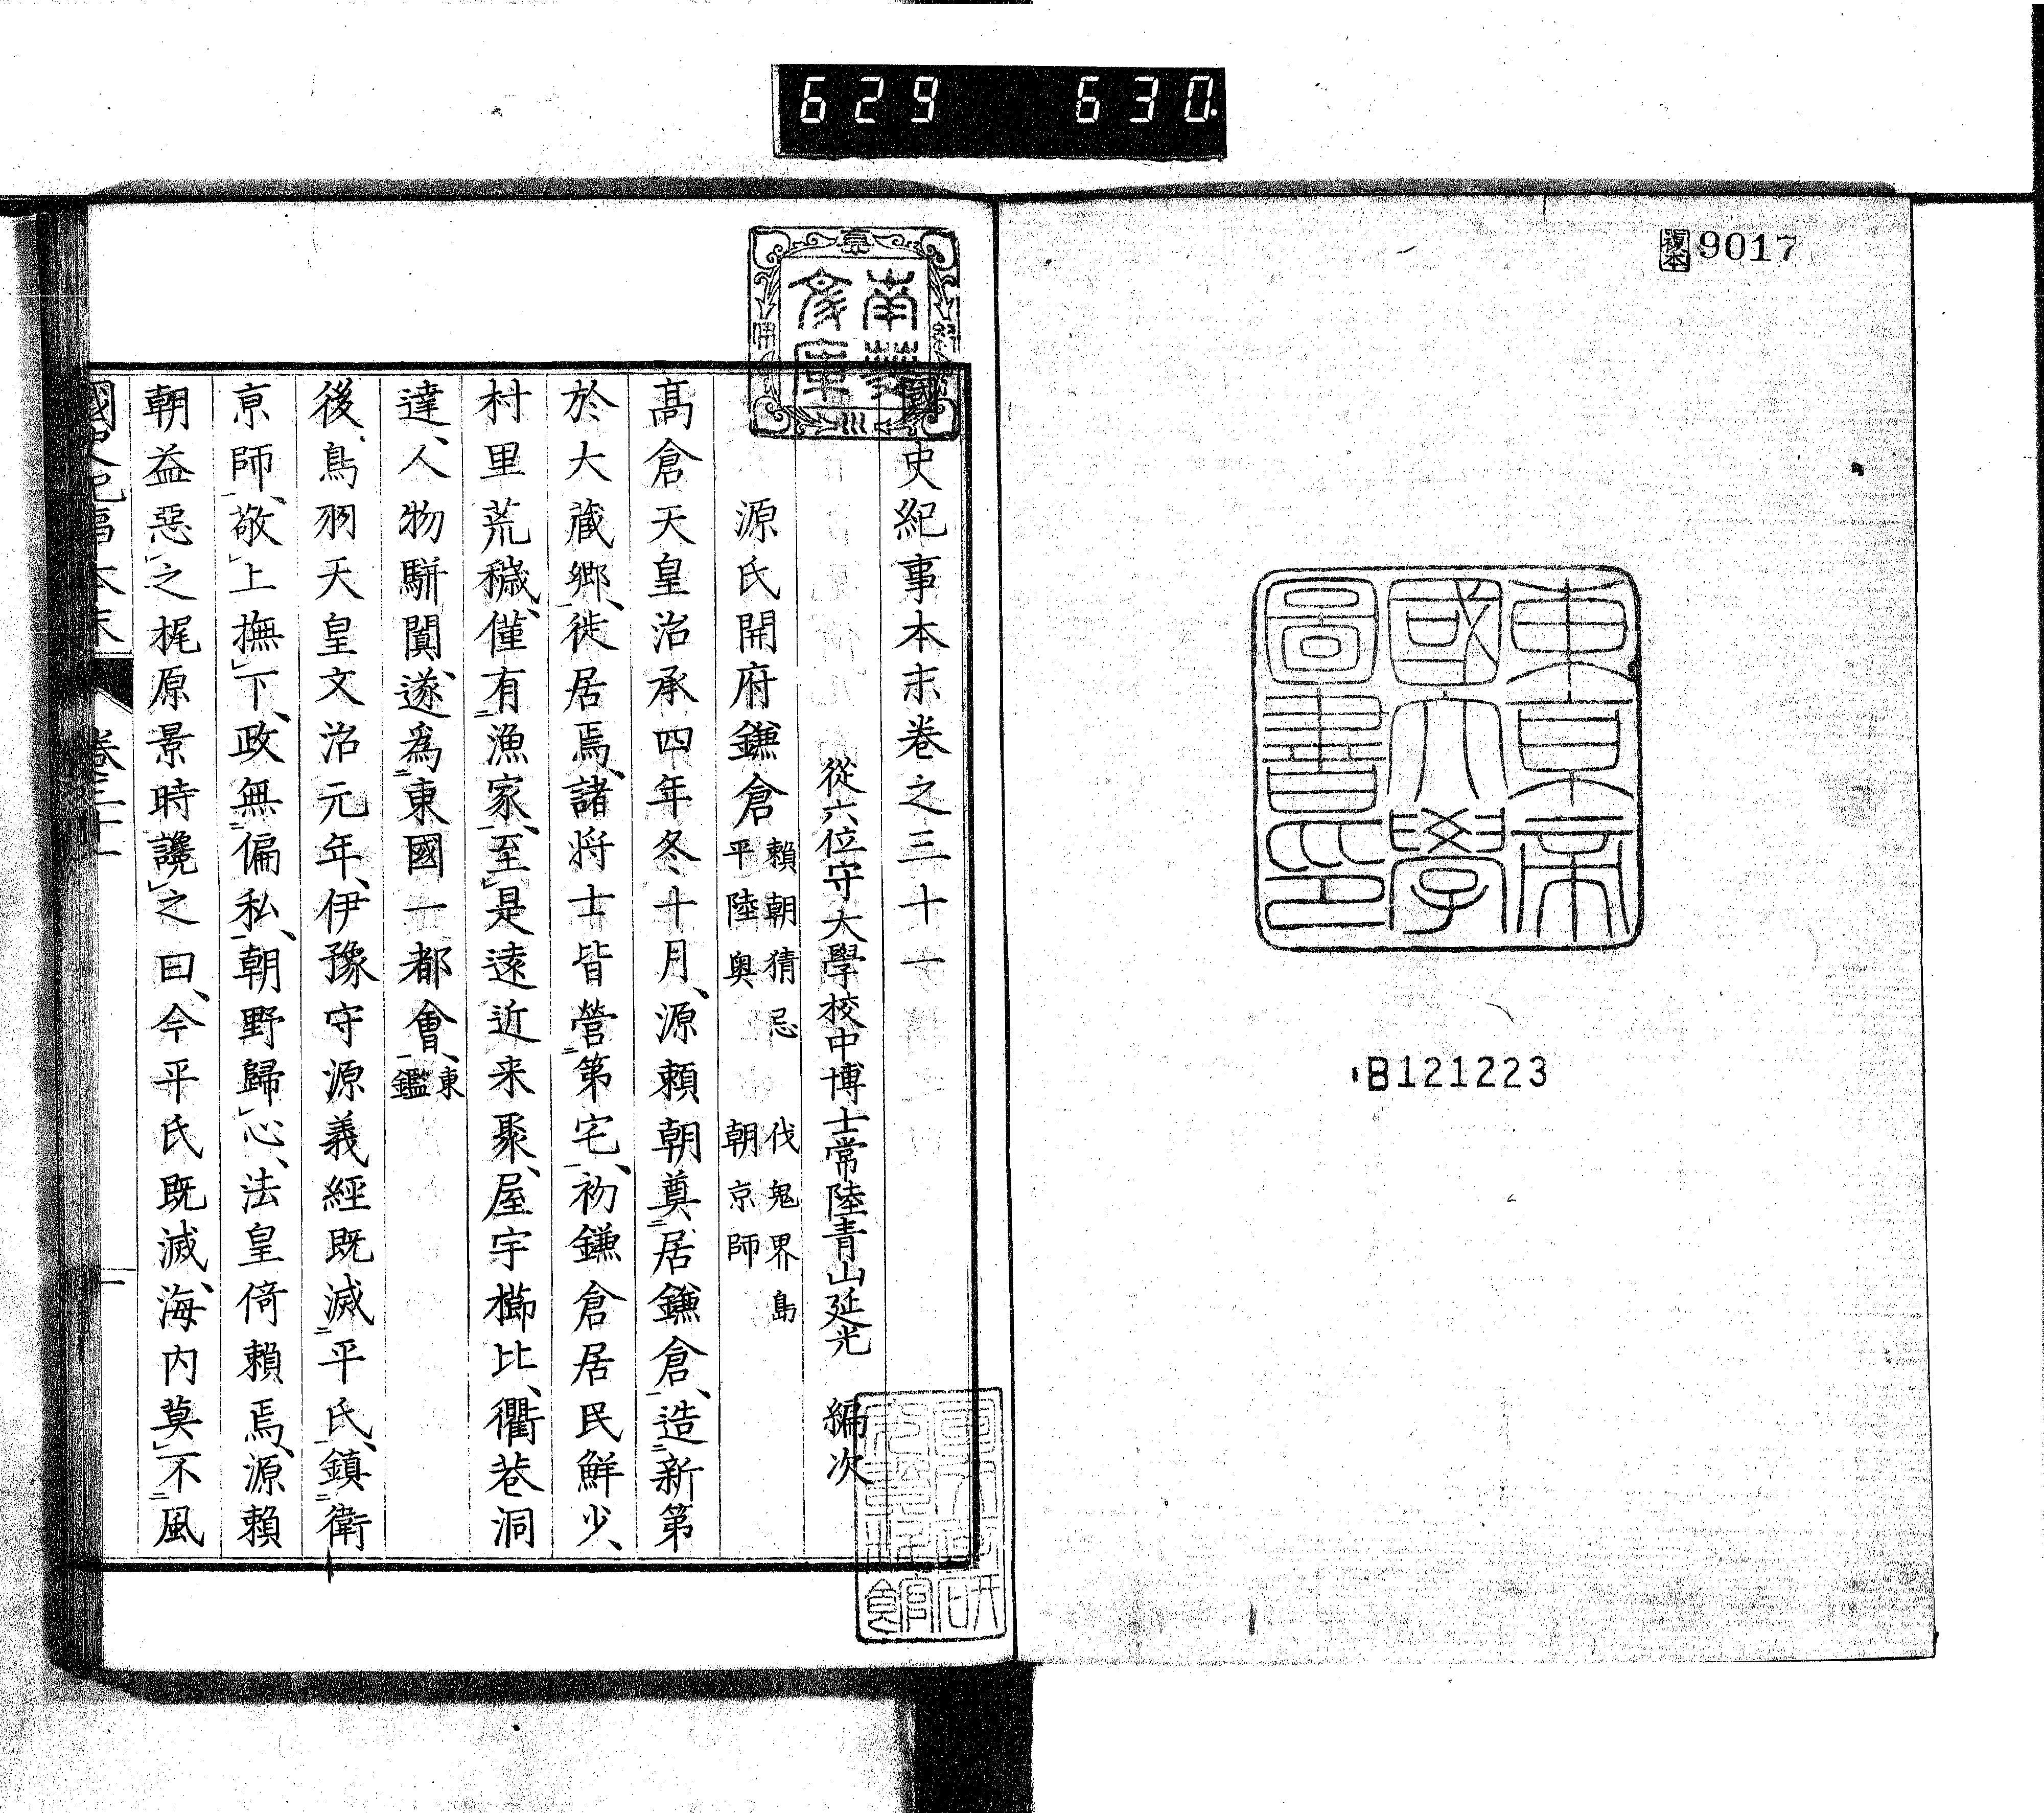 629 630
複本 9017
東京帝
國大學
圖書印
B121223
南葵
文庫
國史紀事本末卷之三十一
從六位守大學校中博士常陸青山延光 編次
源氏開府鎌倉 賴朝猜忌 伐鬼界島
平陸奧 朝京師
髙倉天皇治承四年冬十月、源賴朝奠居鎌倉、造新第
於大藏鄉、徙居焉、諸將士皆營第宅、初鎌倉居民鮮少、
村里荒穢、僅有漁家、至是遠近来聚、屋宇櫛比、衢巷洞
達、人物駢闐、遂爲東國一都會、東
鑑
後鳥羽天皇文治元年、伊豫守源義經既滅平氏、鎮衛
亰師、敬上撫下、政無偏私、朝野歸心、法皇倚賴焉、源賴
朝益惡之梶原景時讒之曰、今平氏既滅、海内莫不風
國史紀事本末 卷三十一 一